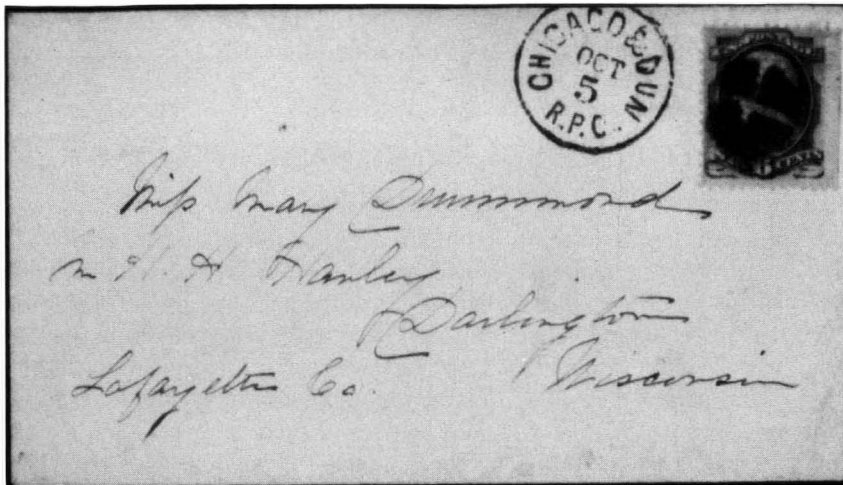 CHICAGO & DUN
OCT
5
R.P.O.
Miss Mary Drummond
H. H. Hanley
Darlington
Lafayette Co. Wisconsin